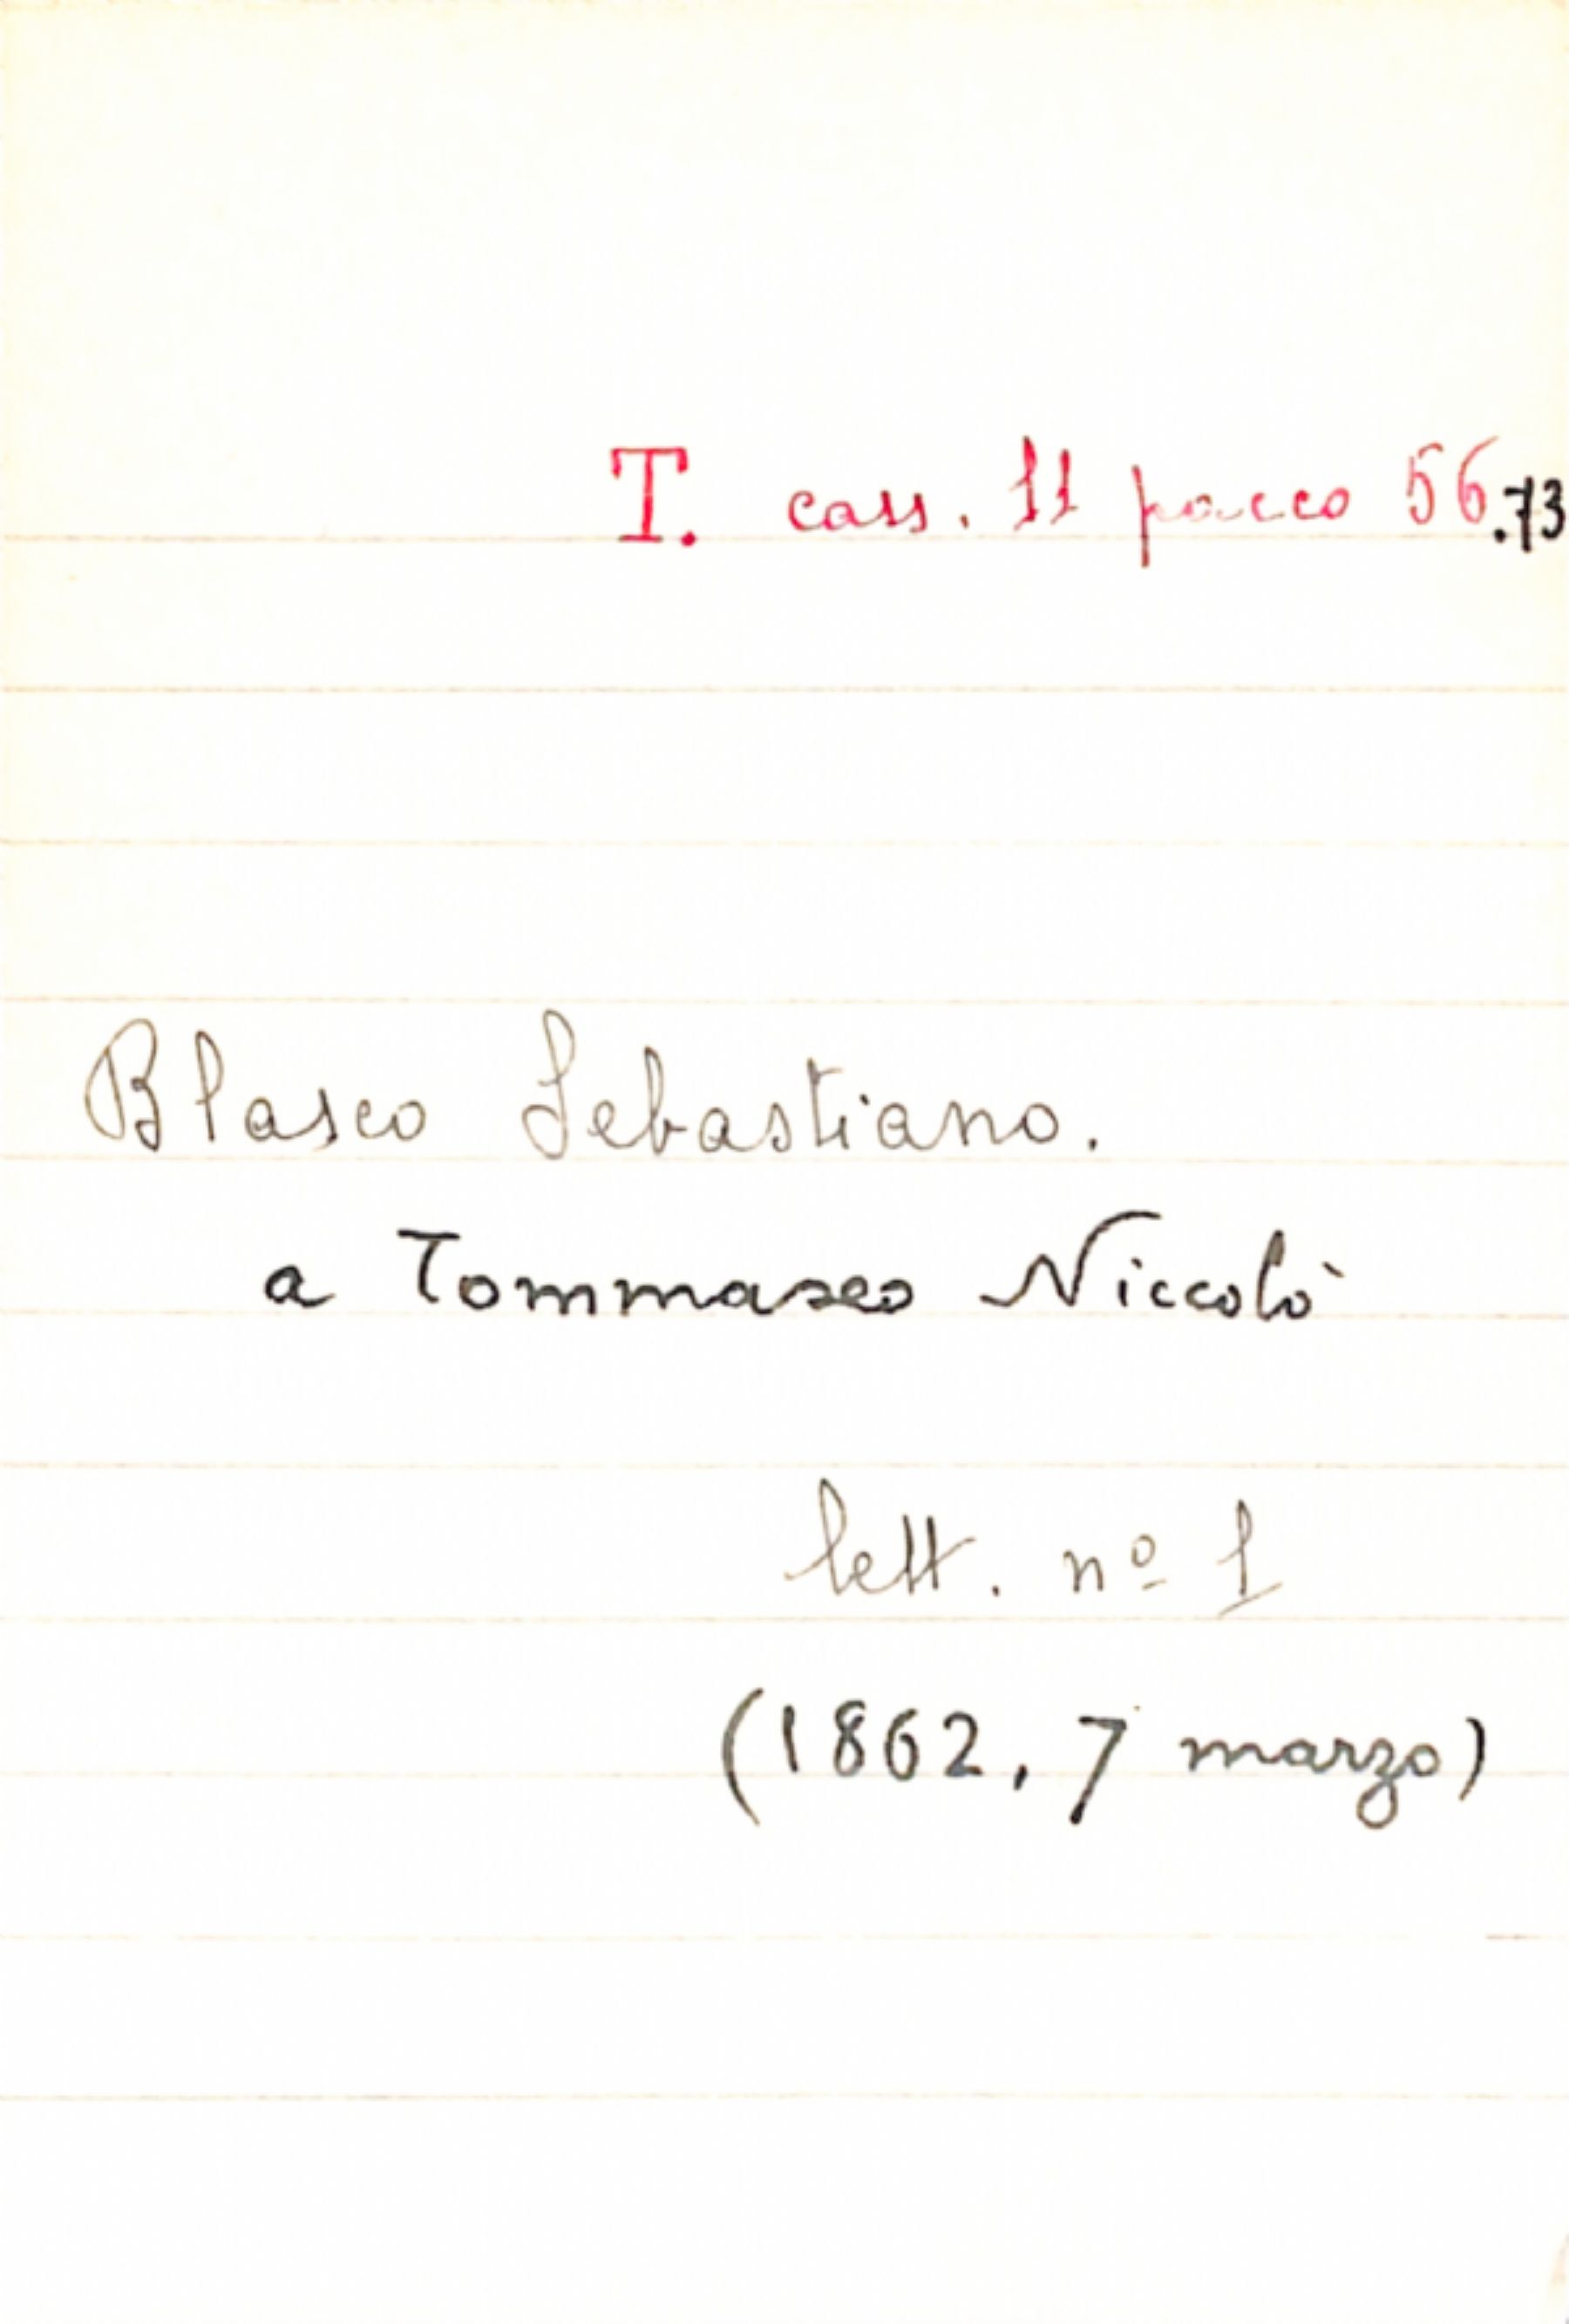 T. cass. 11 pacco 56.73
Blasco Sebastiano.
a Tommaseo Niccolò
lett. nº 1
(1862, 7 marzo)